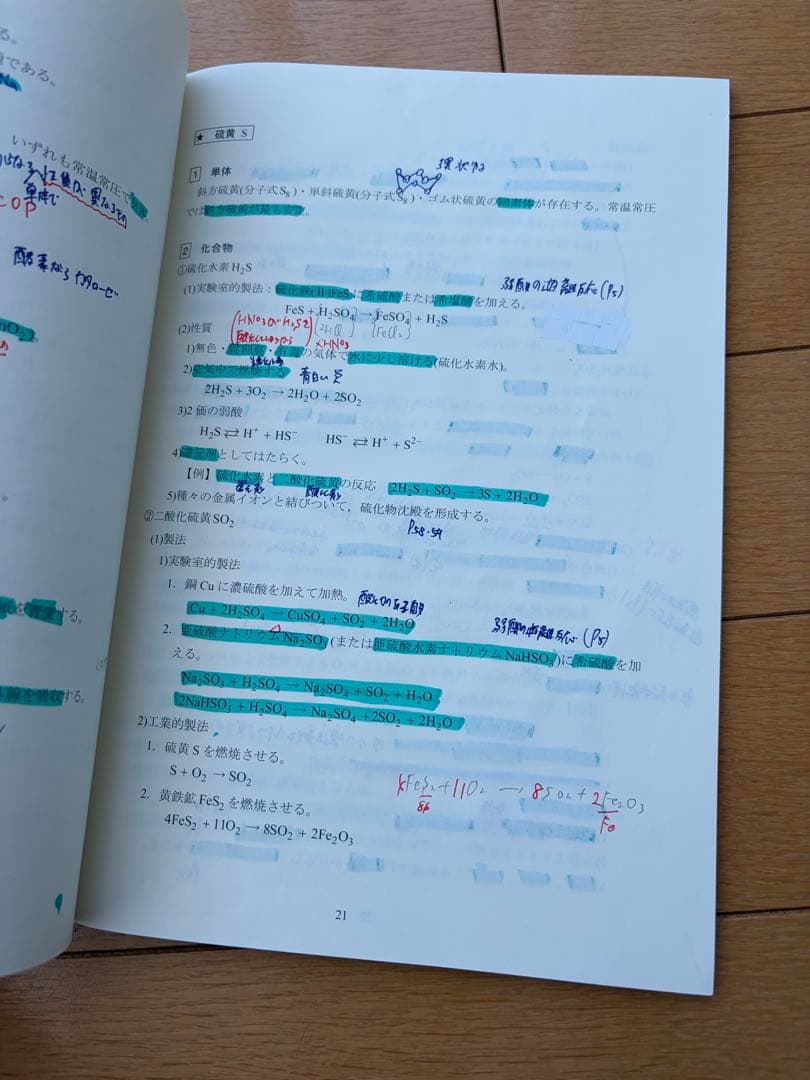 る。
である。
いずれも常温常圧で気体
COP
酸素なら カタローゼ
nO₂)。
を青変する。
線を吸収する。
★ 硫黄 S
1 単体
環状分子
斜方硫黄(分子式S₈)・単斜硫黄(分子式S₈)・ゴム状硫黄の同素体が存在する。常温常圧
では斜方硫黄が最も安定。
2 化合物
①硫化水素H₂S
弱酸の遊離反応(P5)
(1)実験室的製法：硫化鉄(II)FeSに希硫酸または希塩酸を加える。
FeS + H₂SO₄ → FeSO₄ + H₂S
(2)性質
(HNO₃がH₂Sを
[2HCl] [FeCl₂]
×HNO₃
1)無色・腐卵臭・有毒の気体で水に少し溶ける(硫化水素水)。
2)空気中で燃焼する 青白い炎
2H₂S + 3O₂ → 2H₂O + 2SO₂
3)2価の弱酸
H₂S ⇄ H⁺ + HS⁻ HS⁻ ⇄ H⁺ + S²⁻
4)還元剤としてはたらく。
【例】硫化水素と二酸化硫黄の反応 2H₂S + SO₂ → 3S + 2H₂O
還元剤 酸化剤
5)種々の金属イオンと結びついて，硫化物沈殿を形成する。
P58·59
②二酸化硫黄SO₂
(1)製法
1)実験室的製法
1. 銅Cuに濃硫酸を加えて加熱。
Cu + 2H₂SO₄ → CuSO₄ + SO₂ + 2H₂O
弱酸の遊離反応(P5)
2. 亜硫酸ナトリウムNa₂SO₃(または亜硫酸水素ナトリウムNaHSO₃)に希硫酸を加
える。
Na₂SO₃ + H₂SO₄ → Na₂SO₄ + SO₂ + H₂O
2NaHSO₃ + H₂SO₄ → Na₂SO₄ + 2SO₂ + 2H₂O
2)工業的製法
1. 硫黄Sを燃焼させる。
S + O₂ → SO₂
2. 黄鉄鉱FeS₂を燃焼させる。
4FeS₂ + 11O₂ → 8SO₂ + 2Fe₂O₃
4FeS₂ + 11O₂ → 8SO₂ + 2Fe₂O₃
Fe
21